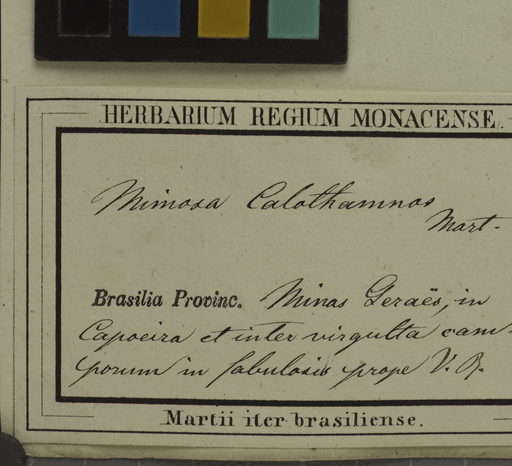 HERBARIUM REGIUM MONACENSE.
Mimosa Calothamnos
Mart.
Brasilia Provinc. Minas Geraës, in
Capoeira et inter virgulta cam-
porum in sabulosis prope V. R.
Martii iter brasiliense.